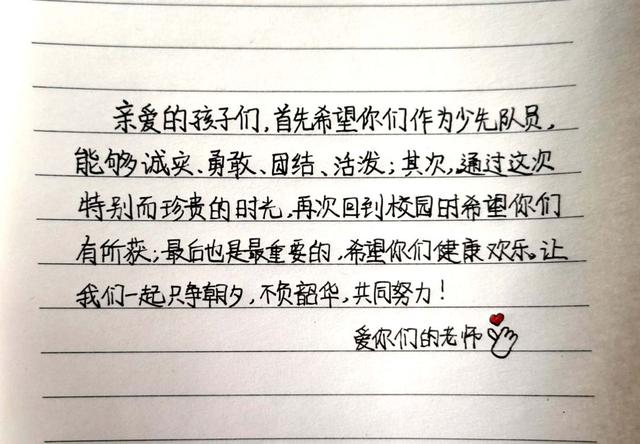 亲爱的孩子们，首先希望你们作为少先队员，
能够诚实、勇敢、团结、活泼；其次，通过这次
特别而珍贵的时光，再次回到校园时希望你们
有所获；最后也是最重要的，希望你们健康欢乐。让
我们一起只争朝夕，不负韶华，共同努力！
爱你们的老师